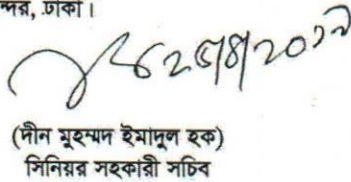 ঢাকা।
(দীন মুহম্মদ ইমাদুল হক)
সিনিয়র সহকারী সচিব